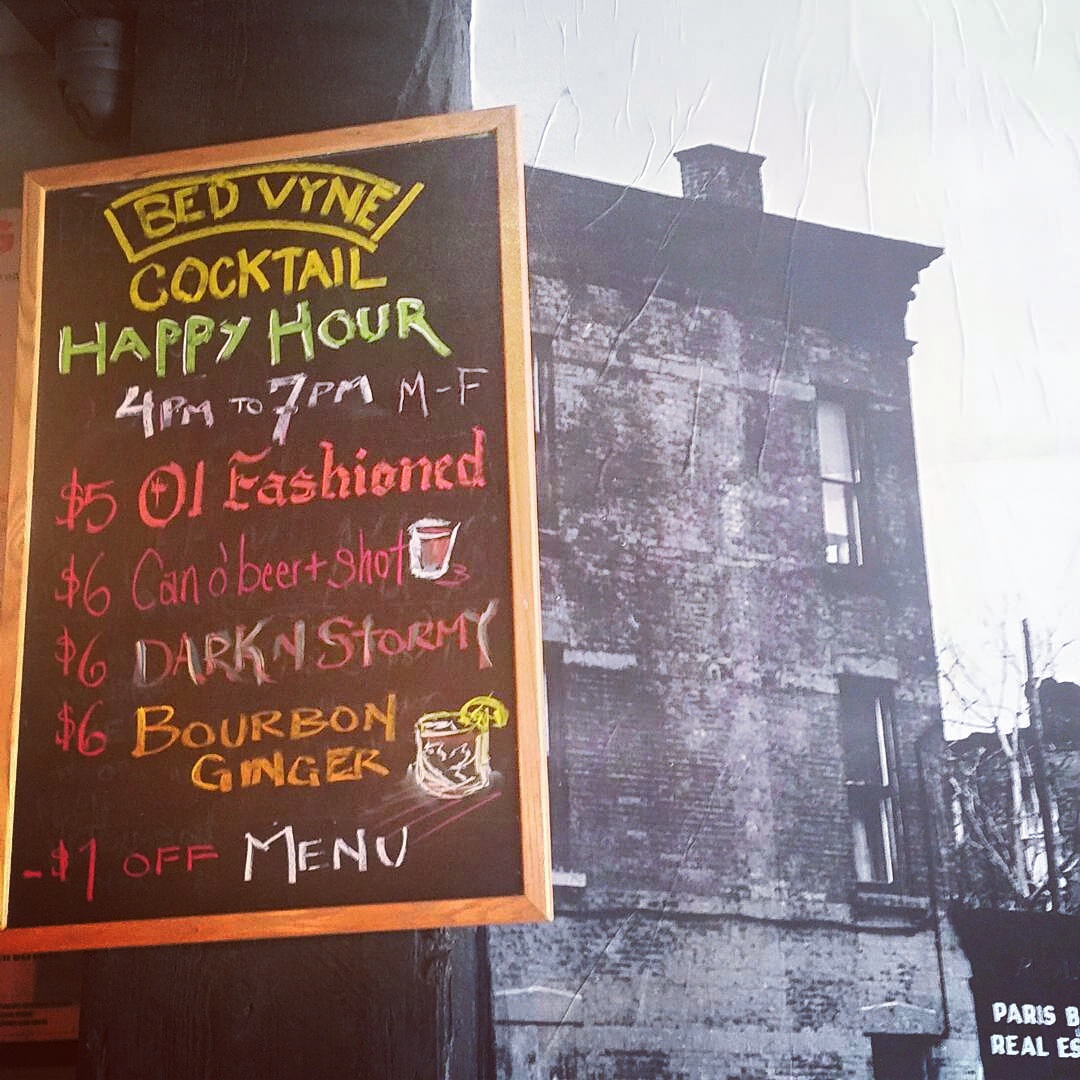 BED VYNE
COCKTAIL
HAPPY HOUR
4PM TO 7PM M-F
$5 Ol Fashioned
$6 Can o' beer + shot
$6 DARK N STORMY
$6 BOURBON
GINGER
-$1 OFF MENU
PARIS B
REAL ES